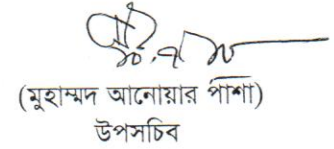 (মুহাম্মদ আনোয়ার পাশা)
উপসচিব